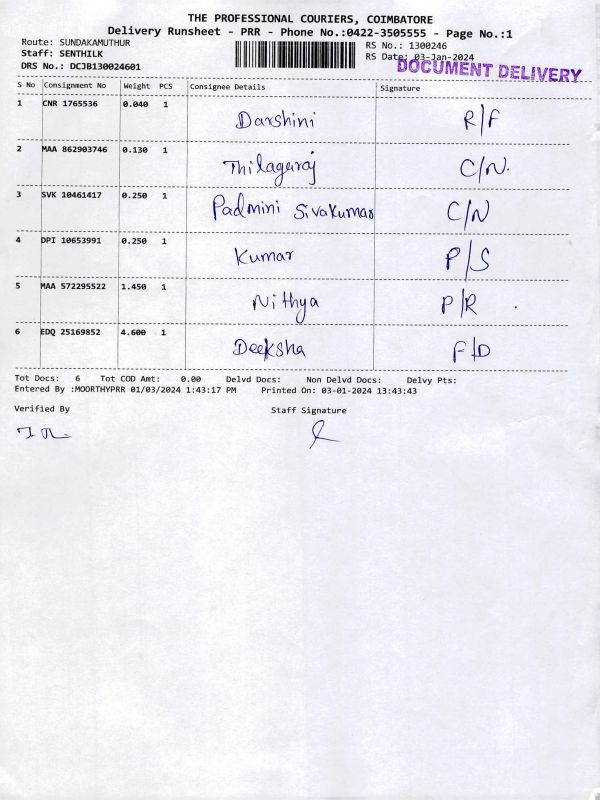 THE PROFESSIONAL COURIERS, COIMBATORE
Delivery Runsheet - PRR - Phone No.:0422-3505555 - Page No.:1
Route: SUNDAKAMUTHUR
RS No.: 1300246
Staff: SENTHILK
RS Date: 03-Jan-2024
DRS No.: DCJB130024601
DOCUMENT DELIVERY
S No Consignment No Weight PCS Consignee Details Signature
1 CNR 1765536 0.040 1 Darshini R/F
2 MAA 862903746 0.130 1 Thilagaraj C/N.
3 SVK 10461417 0.250 1 Padmini Sivakumar C/N
4 DPI 10653991 0.250 1 Kumar P/S
5 MAA 572295522 1.450 1 Nithya P/R
6 EDQ 25169852 4.600 1 Deeksha F/D
Tot Docs: 6 Tot COD Amt: 0.00 Delvd Docs: Non Delvd Docs: Delvy Pts:
Entered By :MOORTHYPRR 01/03/2024 1:43:17 PM Printed On: 03-01-2024 13:43:43
Verified By Staff Signature